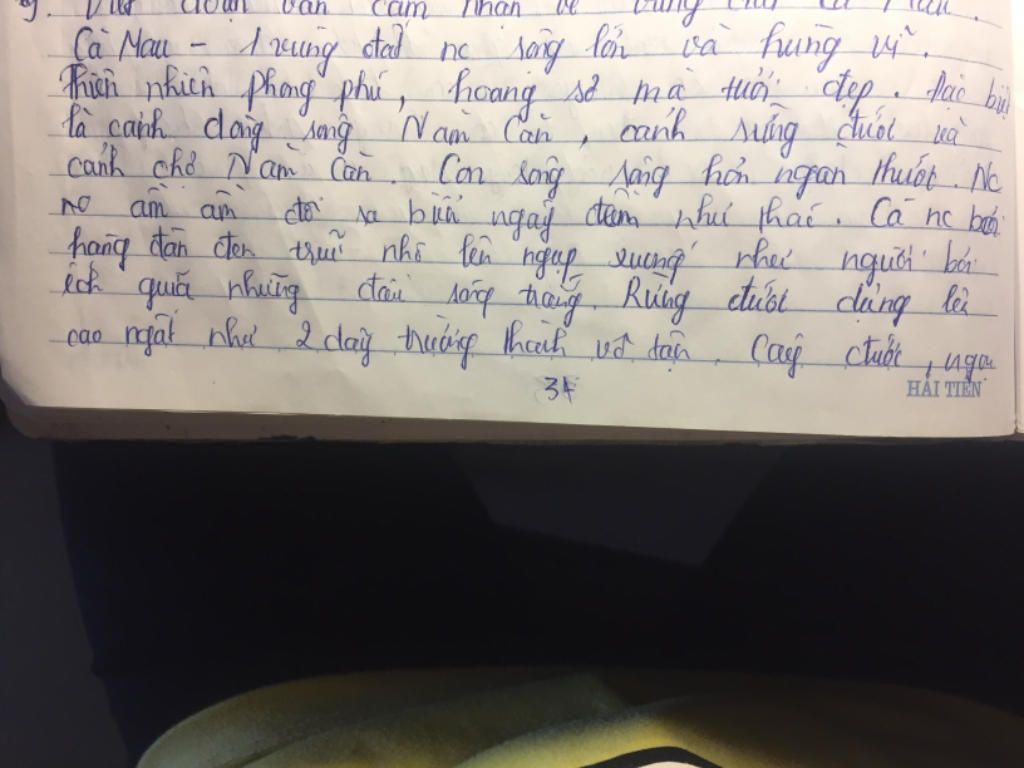 Viết đoạn văn cảm nhận về vùng đất Cà Mau.
Cà Mau - 1 vùng đất nc sông lớn và hùng vĩ.
Thiên nhiên phong phú, hoang sơ mà tươi đẹp. Đặc biệt
là cảnh dòng sông Năm Căn, cảnh rừng đước và
cảnh chợ Năm Căn. Con sông rộng hơn ngàn thước. Nc
nó ầm ầm đổ ra biển ngày đêm như thác. Cá nc bơi
hàng đàn đen trũi nhô lên ngụp xuống như người bơi
ếch giữa những đầu sóng trắng. Rừng đước dựng lên
cao ngất như 2 dãy trường thành vô tận. Cây đước, ngọn
34
HẢI TIẾN